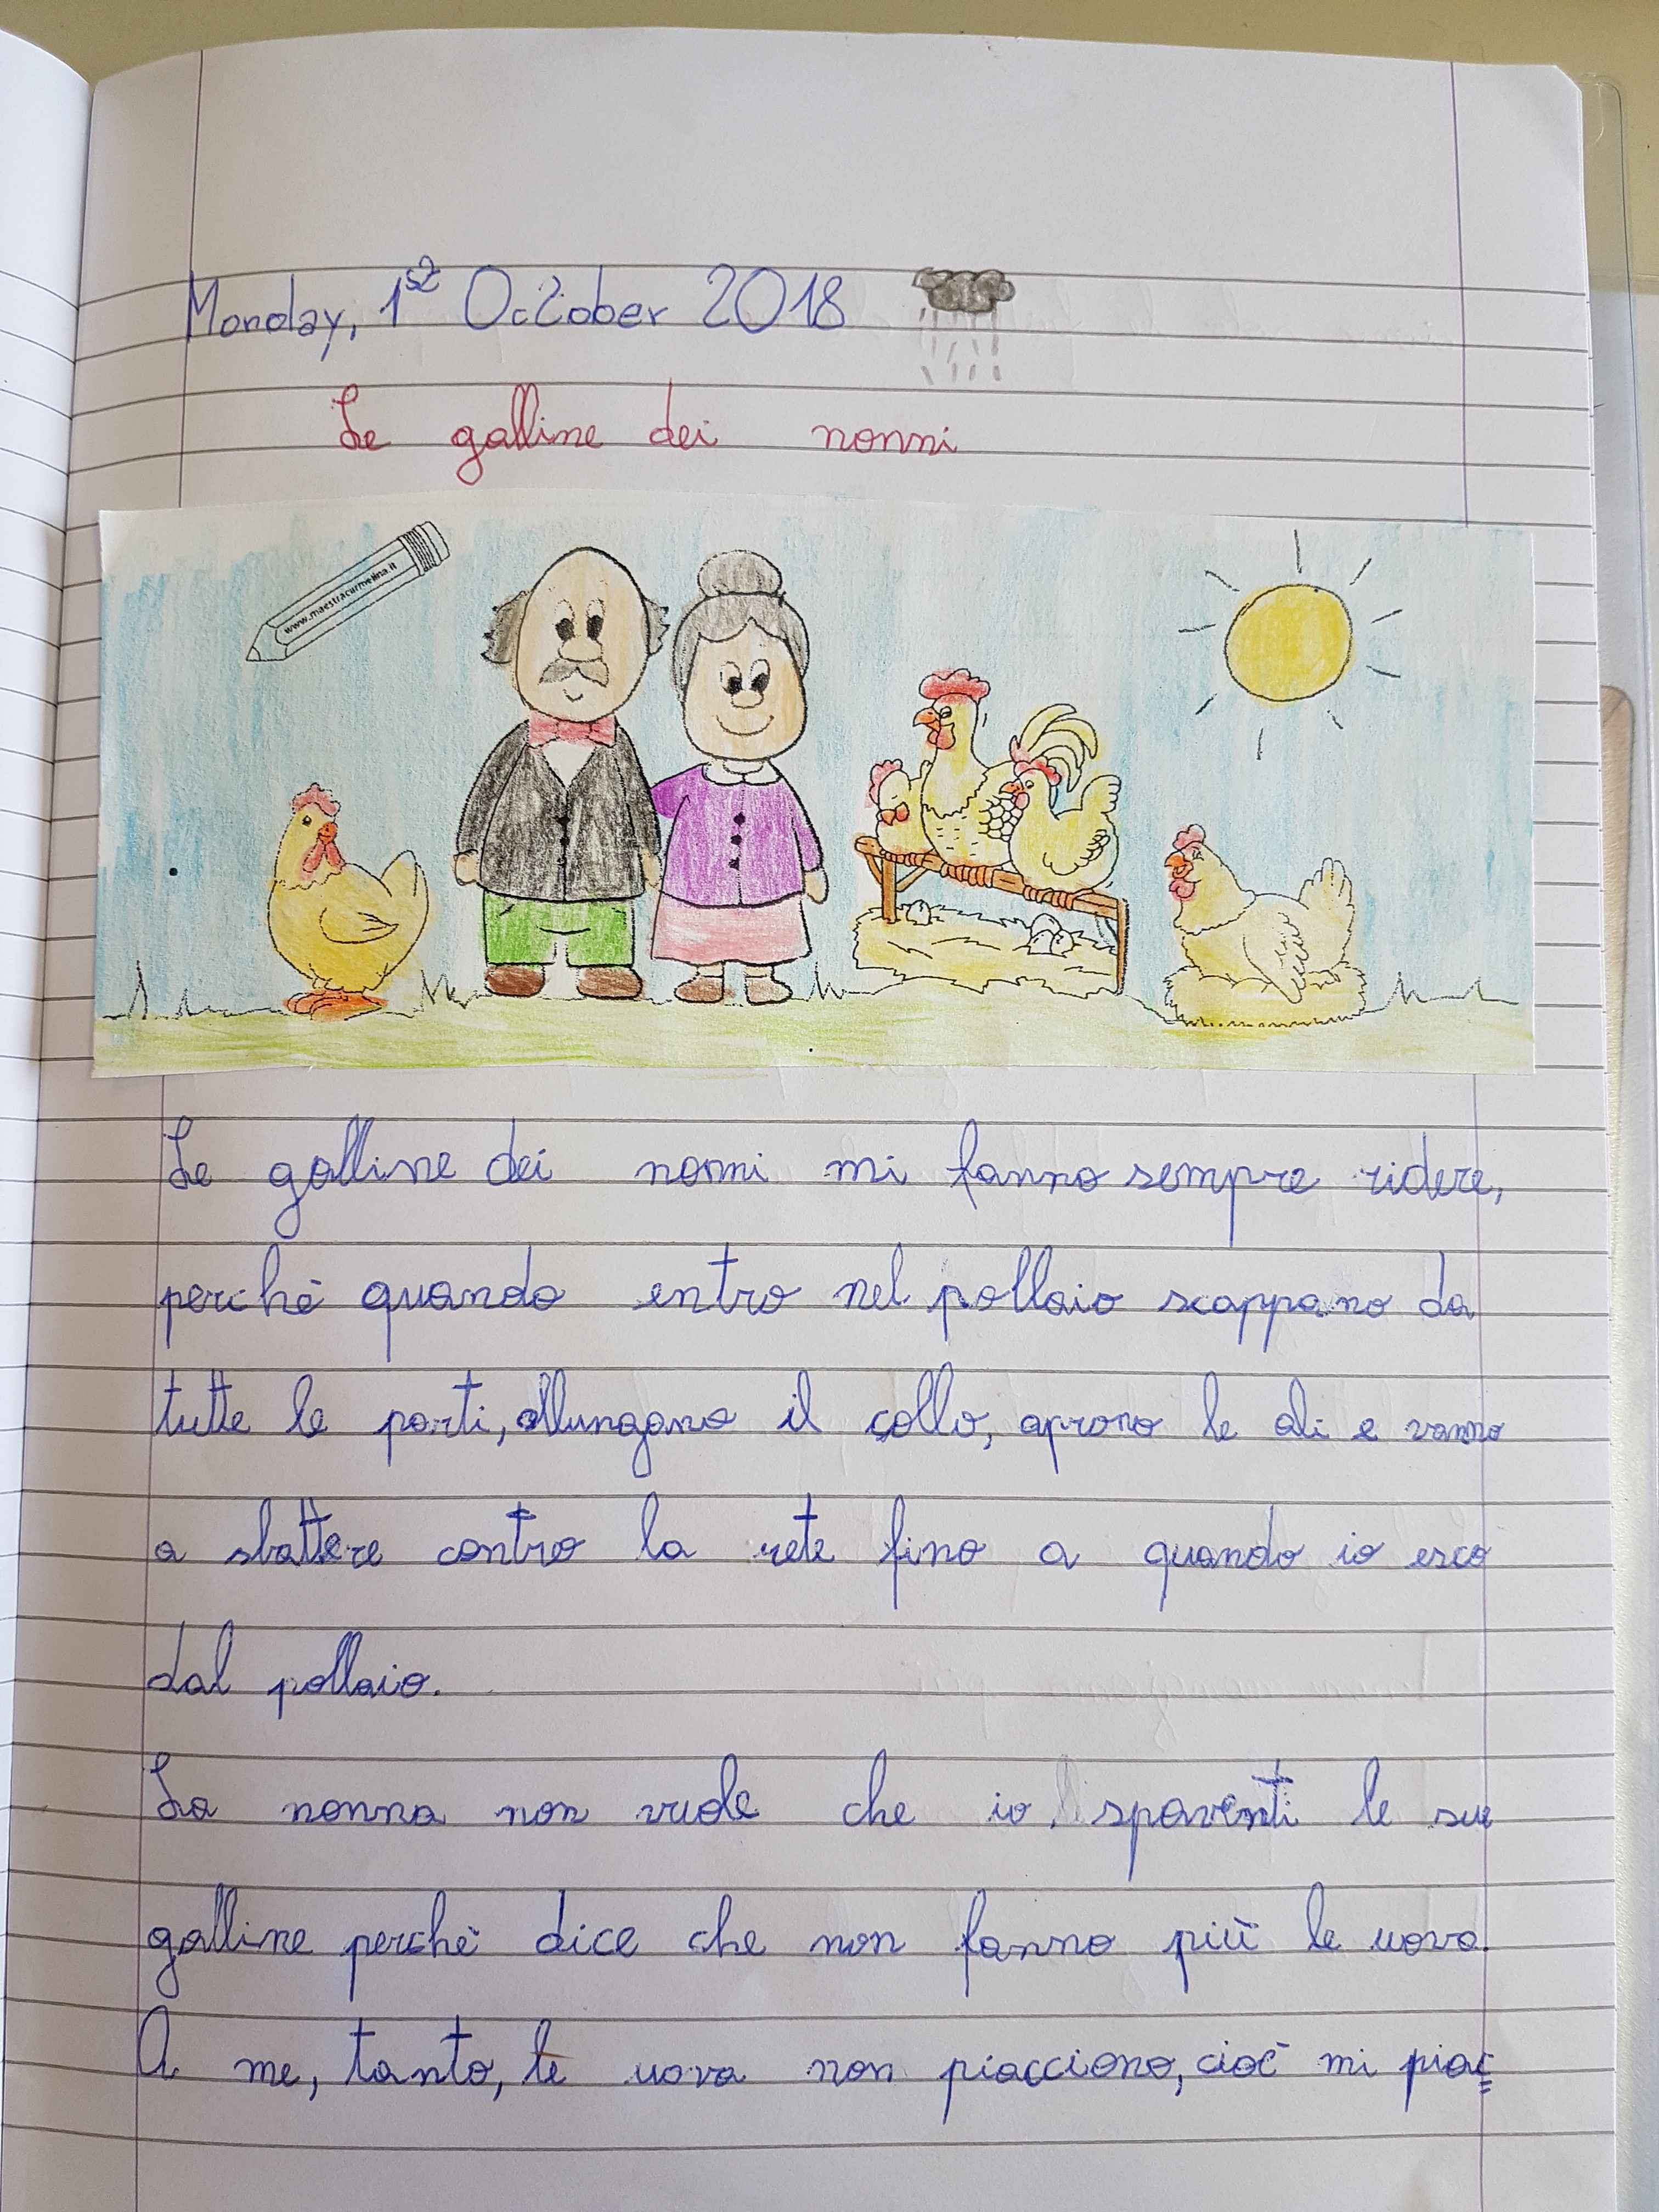 Monday, 1st October 2018
Le galline dei nonni
www.maestracarmelina.it
Le galline dei nonni mi fanno sempre ridere,
perchè quando entro nel pollaio scappano da
tutte le parti, allungano il collo, aprono le ali e vanno
a sbattere contro la rete fino a quando io esco
dal pollaio.
La nonna non vuole che io spaventi le sue
galline perchè dice che non fanno più le uova.
A me, tanto, le uova non piacciono, cioè mi piac=